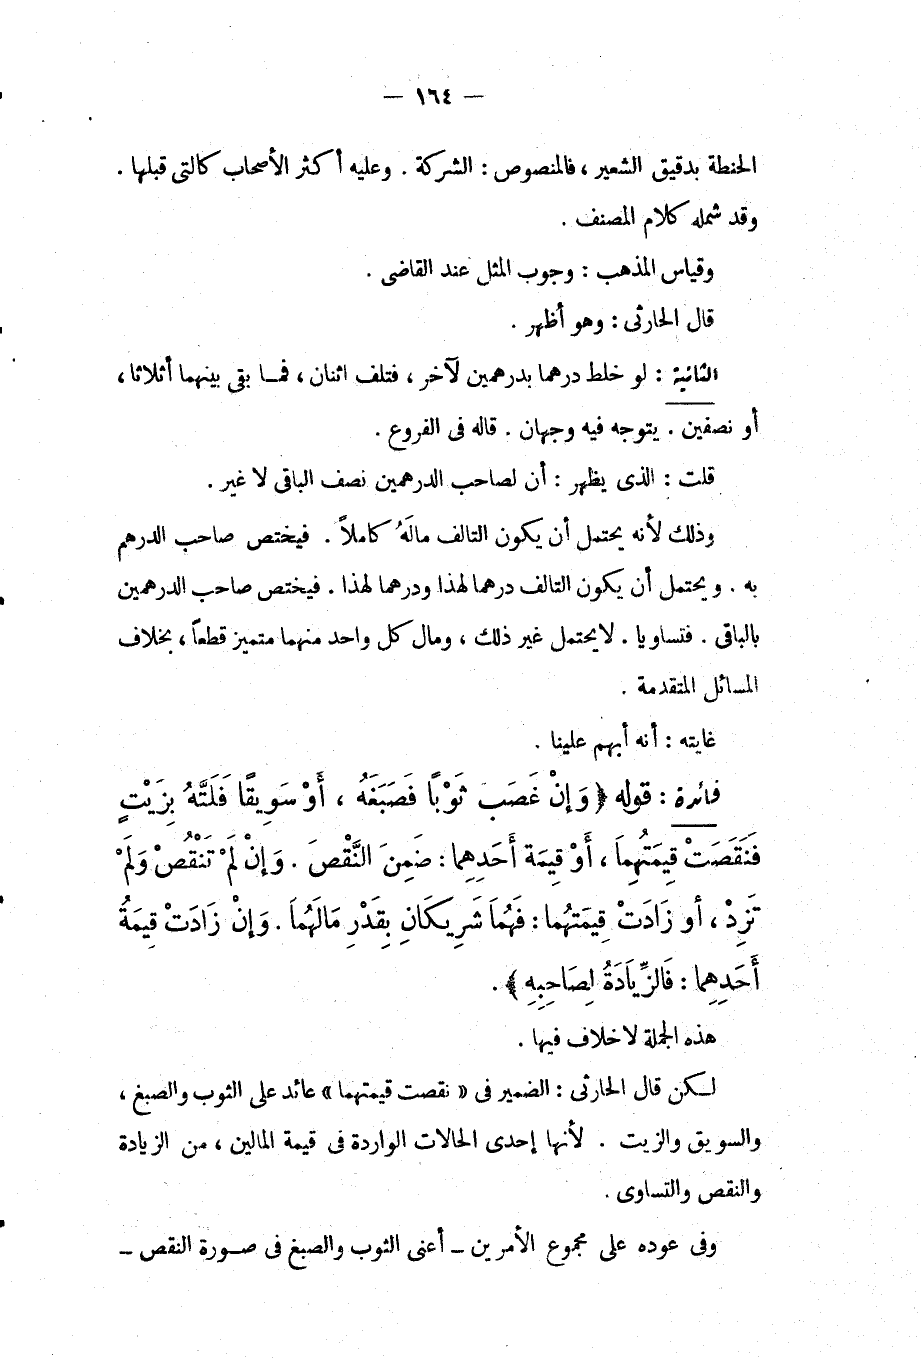 — ١٦٤ —
الحنطة بدقيق الشعير ، فالمنصوص : الشركة . وعليه أكثر الأصحاب كالتى قبلها .
وقد شمله كلام المصنف .
وقياس المذهب : وجوب المثل عند القاضى .
قال الحارثى : وهو أظهر .
الثانية : لو خلط درهما بدرهمين لآخر ، فتلف اثنان ، فمـا بقى بينهما أثلاثا ،
أو نصفين . يتوجه فيه وجهان . قاله فى الفروع .
قلت : الذى يظهر : أن لصاحب الدرهمين نصف الباقى لا غير .
وذلك لأنه يحتمل أن يكون التالف مالَهُ كاملاً . فيختص صاحب الدرهم
به . ويحتمل أن يكون التالف درهما لهذا ودرهما لهذا . فيختص صاحب الدرهمين
بالباقى . فتساويا . لا يحتمل غير ذلك ، ومال كل واحد منهما متميز قطعاً ، بخلاف
المسائل المتقدمة .
غايته : أنه أبهم علينا .
فائدة : قوله ﴿ وَإِنْ غَصَبَ ثَوْبًا فَصَبَغَهُ ، أَوْ سَوِيقًا فَلَتَّهُ بِزَيْتٍ
فَنَقَصَتْ قِيمَتُهِمَا ، أَوْ قِيمَة أَحَدِهِما : ضَمِنَ النَّقْصَ . وَإِنْ لَمْ تَنْقُصْ وَلَمْ
تَزِدْ ، أو زَادَتْ قِيمَتهُما : فَهُمَا شَرِيكَانِ بِقَدْرِ مَالَهُمَا . وَإِنْ زَادَتْ قِيمَةُ
أَحَدِهِما : فَالزِّيَادَةُ لِصَاحِبِهِ ﴾ .
هذه الجملة لا خلاف فيها .
لـكن قال الحارثى : الضمير فى « نقصت قيمتهما » عائد على الثوب والصبغ ،
والسويق والزيت . لأنها إحدى الحالات الواردة فى قيمة المالين ، من الزيادة
والنقص والتساوى .
وفى عوده على مجموع الأمرين ــ أعنى الثوب والصبغ فى صـورة النقص ــ